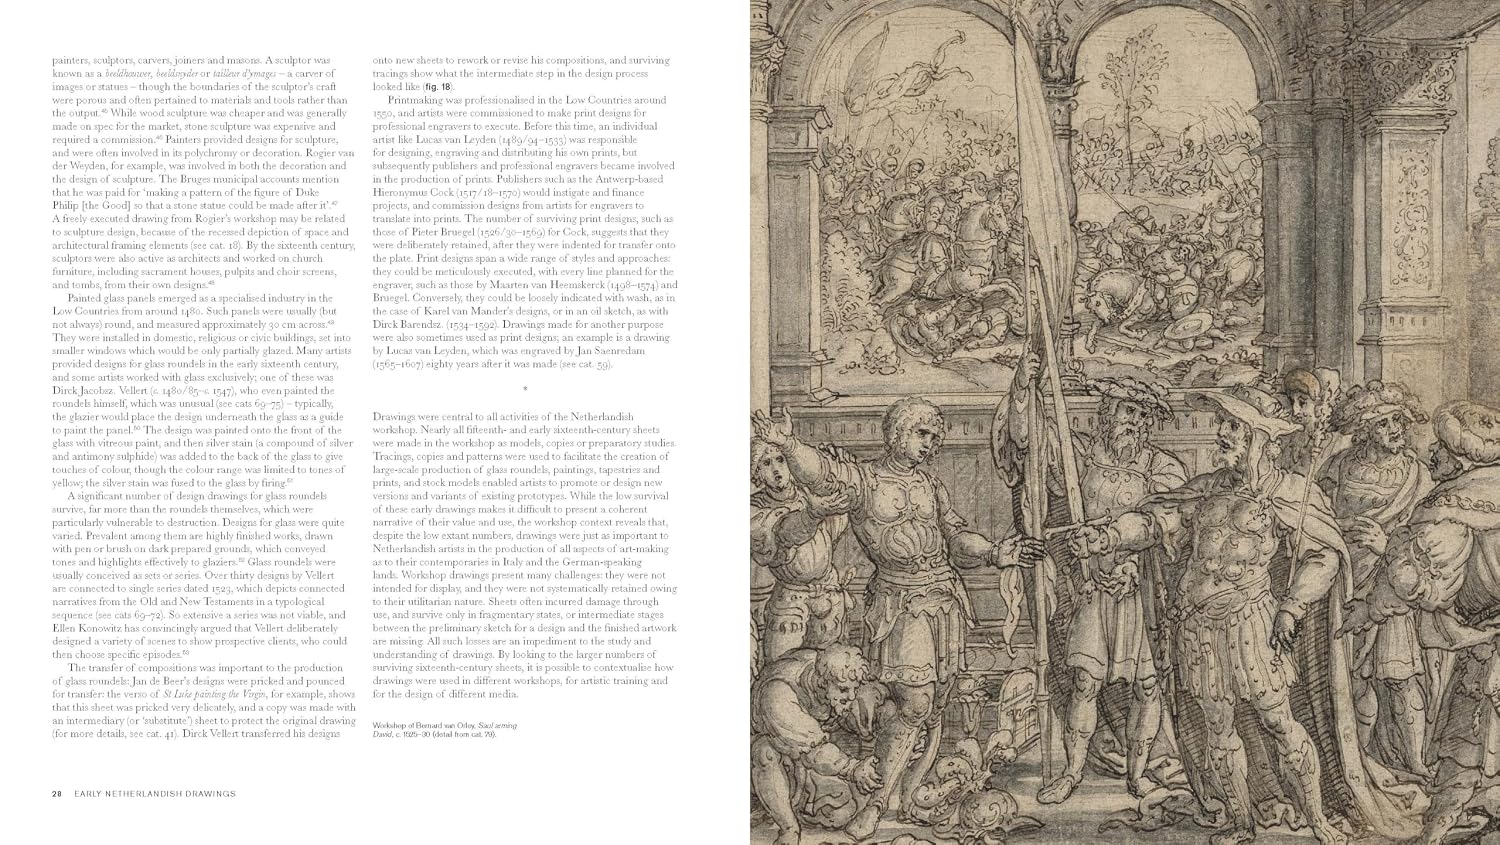 painters, sculptors, carvers, joiners and masons. A sculptor was
known as a beeldhouwer, beeldsnyder or tailleur d'ymages – a carver of
images or statues – though the boundaries of the sculptor's craft
were porous and often pertained to materials and tools rather than
the output.45 While wood sculpture was cheaper and was generally
made on spec for the market, stone sculpture was expensive and
required a commission.46 Painters provided designs for sculpture,
and were often involved in its polychromy or decoration. Rogier van
der Weyden, for example, was involved in both the decoration and
the design of sculpture. The Bruges municipal accounts mention
that he was paid for 'making a pattern of the figure of Duke
Philip [the Good] so that a stone statue could be made after it'.47
A freely executed drawing from Rogier's workshop may be related
to sculpture design, because of the recessed depiction of space and
architectural framing elements (see cat. 18). By the sixteenth century,
sculptors were also active as architects and worked on church
furniture, including sacrament houses, pulpits and choir screens,
and tombs, from their own designs.48
Painted glass panels emerged as a specialised industry in the
Low Countries from around 1480. Such panels were usually (but
not always) round, and measured approximately 30 cm across.49
They were installed in domestic, religious or civic buildings, set into
smaller windows which would be only partially glazed. Many artists
provided designs for glass roundels in the early sixteenth century,
and some artists worked with glass exclusively; one of these was
Dirck Jacobsz. Vellert (c. 1480/85–c. 1547), who even painted the
roundels himself, which was unusual (see cats 69–75) – typically,
the glazier would place the design underneath the glass as a guide
to paint the panel.50 The design was painted onto the front of the
glass with vitreous paint, and then silver stain (a compound of silver
and antimony sulphide) was added to the back of the glass to give
touches of colour, though the colour range was limited to tones of
yellow; the silver stain was fused to the glass by firing.51
A significant number of design drawings for glass roundels
survive, far more than the roundels themselves, which were
particularly vulnerable to destruction. Designs for glass were quite
varied. Prevalent among them are highly finished works, drawn
with pen or brush on dark prepared grounds, which conveyed
tones and highlights effectively to glaziers.52 Glass roundels were
usually conceived as sets or series. Over thirty designs by Vellert
are connected to single series dated 1523, which depicts connected
narratives from the Old and New Testaments in a typological
sequence (see cats 69–72). So extensive a series was not viable, and
Ellen Konowitz has convincingly argued that Vellert deliberately
designed a variety of scenes to show prospective clients, who could
then choose specific episodes.53
The transfer of compositions was important to the production
of glass roundels: Jan de Beer's designs were pricked and pounced
for transfer: the verso of St Luke painting the Virgin, for example, shows
that this sheet was pricked very delicately, and a copy was made with
an intermediary (or 'substitute') sheet to protect the original drawing
(for more details, see cat. 41). Dirck Vellert transferred his designs
onto new sheets to rework or revise his compositions, and surviving
tracings show what the intermediate step in the design process
looked like (fig. 18).
Printmaking was professionalised in the Low Countries around
1550, and artists were commissioned to make print designs for
professional engravers to execute. Before this time, an individual
artist like Lucas van Leyden (1489/94–1533) was responsible
for designing, engraving and distributing his own prints, but
subsequently publishers and professional engravers became involved
in the production of prints. Publishers such as the Antwerp-based
Hieronymus Cock (1517/18–1570) would instigate and finance
projects, and commission designs from artists for engravers to
translate into prints. The number of surviving print designs, such as
those of Pieter Bruegel (1526/30–1569) for Cock, suggests that they
were deliberately retained, after they were indented for transfer onto
the plate. Print designs span a wide range of styles and approaches:
they could be meticulously executed, with every line planned for the
engraver, such as those by Maarten van Heemskerck (1498–1574) and
Bruegel. Conversely, they could be loosely indicated with wash, as in
the case of Karel van Mander's designs, or in an oil sketch, as with
Dirck Barendsz. (1534–1592). Drawings made for another purpose
were also sometimes used as print designs; an example is a drawing
by Lucas van Leyden, which was engraved by Jan Saenredam
(1565–1607) eighty years after it was made (see cat. 59).
*
Drawings were central to all activities of the Netherlandish
workshop. Nearly all fifteenth- and early sixteenth-century sheets
were made in the workshop as models, copies or preparatory studies.
Tracings, copies and patterns were used to facilitate the creation of
large-scale production of glass roundels, paintings, tapestries and
prints, and stock models enabled artists to promote or design new
versions and variants of existing prototypes. While the low survival
of these early drawings makes it difficult to present a coherent
narrative of their value and use, the workshop context reveals that,
despite the low extant numbers, drawings were just as important to
Netherlandish artists in the production of all aspects of art-making
as to their contemporaries in Italy and the German-speaking
lands. Workshop drawings present many challenges: they were not
intended for display, and they were not systematically retained owing
to their utilitarian nature. Sheets often incurred damage through
use, and survive only in fragmentary states, or intermediate stages
between the preliminary sketch for a design and the finished artwork
are missing. All such losses are an impediment to the study and
understanding of drawings. By looking to the larger numbers of
surviving sixteenth-century sheets, it is possible to contextualise how
drawings were used in different workshops, for artistic training and
for the design of different media.
Workshop of Bernard van Orley, Saul arming
David, c. 1525–30 (detail from cat. 79).
28 EARLY NETHERLANDISH DRAWINGS